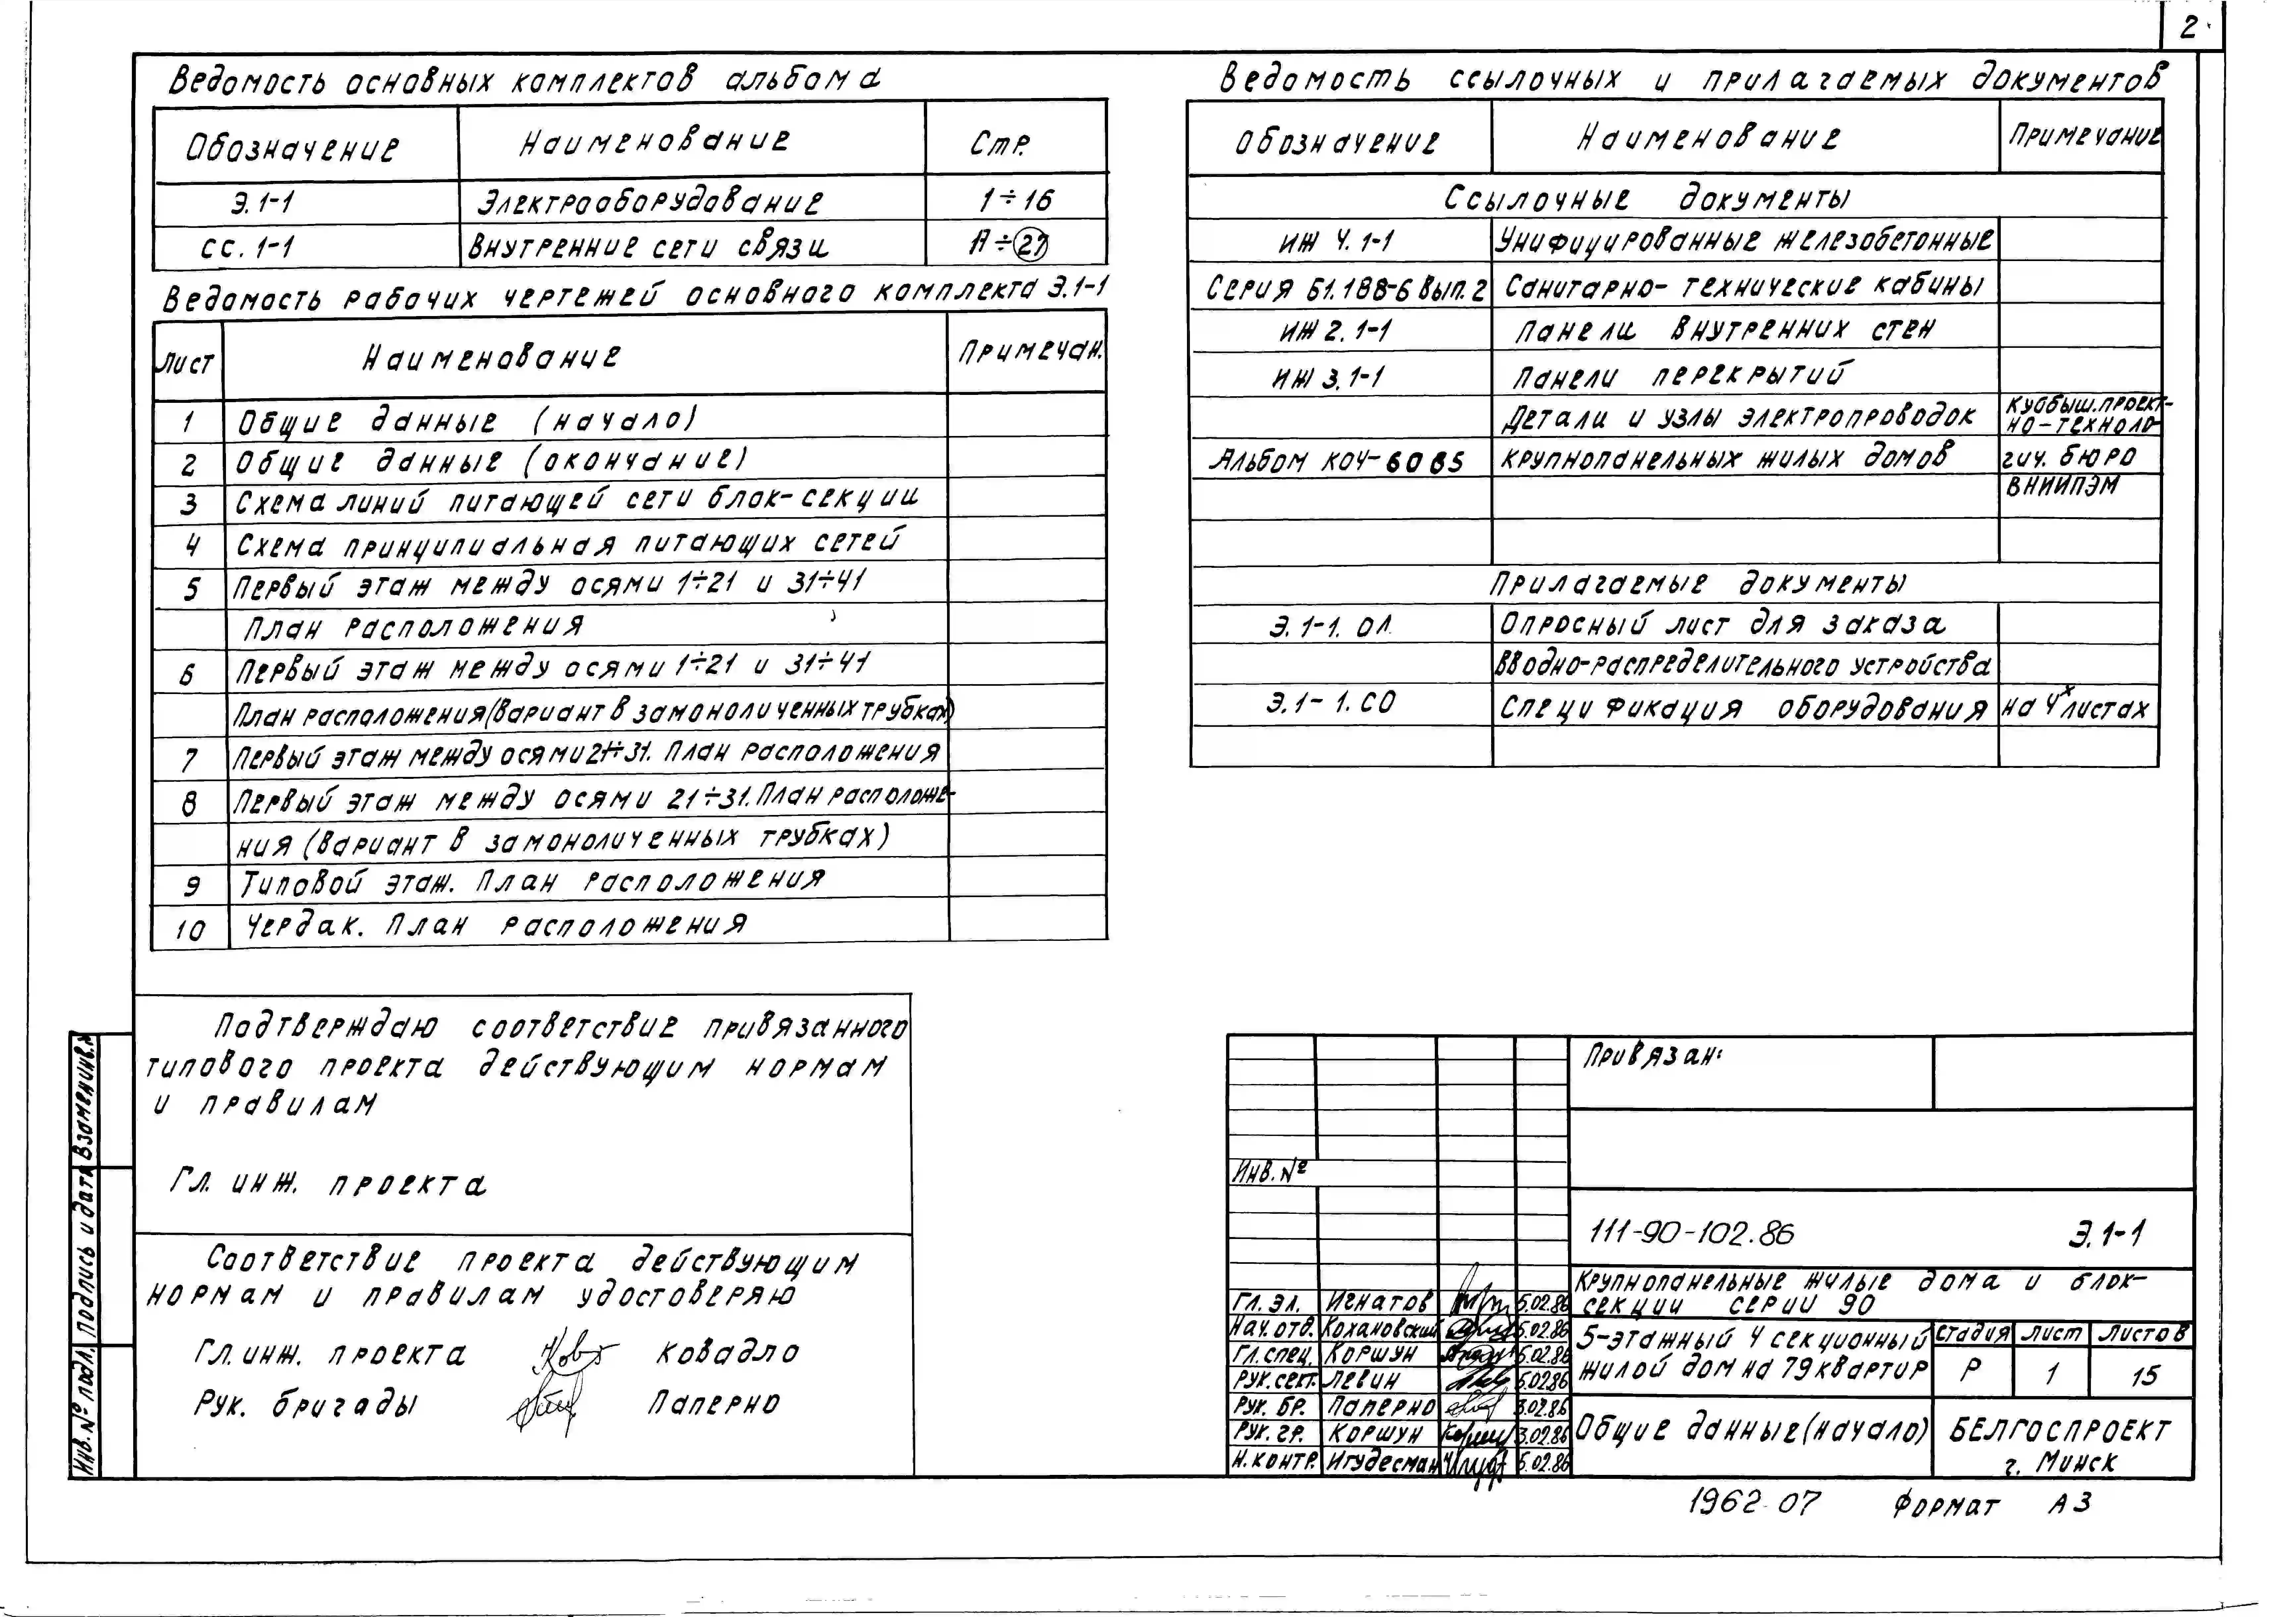 2
Ведомость основных комплектов альбома
Обозначение Наименование Стр.
Э.1-1 Электрооборудование 1÷16
СС.1-1 Внутренние сети связи 27
Ведомость рабочих чертежей основного комплекта Э.1-1
Лист Наименование Примечан.
1 Общие данные (начало)
2 Общие данные (окончание)
3 Схема линий питающей сети блок-секции
4 Схема принципиальная питающих сетей
5 Первый этаж между осями 1÷21 и 31÷41
План расположения
6 Первый этаж между осями 1÷21 и 31÷41
План расположения (вариант в замоноличенных трубках)
7 Первый этаж между осями 21÷31. План расположения
8 Первый этаж между осями 21÷31. План расположе-
ния (вариант в замоноличенных трубках)
9 Типовой этаж. План расположения
10 Чердак. План расположения
Ведомость ссылочных и прилагаемых документов
Обозначение Наименование Примечание
Ссылочные документы
ИЖ 4.1-1 Унифицированные железобетонные
Серия Б1.188-6 Вып.2 Санитарно-технические кабины
ИЖ 2.1-1 Панели внутренних стен
ИЖ 3.1-1 Панели перекрытий
Детали и узлы электропроводок Куйбыш.проект-
но-техноло-
Альбом КОЧ-6085 крупнопанельных жилых домов гич. бюро
ВНИИПЭМ
Прилагаемые документы
Э.1-1.ОЛ Опросный лист для заказа
Вводно-распределительного устройства
Э.1-1.СО Спецификация оборудования на 4х листах
Подтверждаю соответствие привязанного
типового проекта действующим нормам
и правилам
Гл. инж. проекта
Соответствие проекта действующим
нормам и правилам удостоверяю
Гл. инж. проекта Ковадло
Рук. бригады Паперно
Взамен инв.№
Подпись и дата
Инв.№ подл.
Привязан:
Инв.№
111-90-102.86 Э.1-1
Крупнопанельные жилые дома и блок-
секции серии 90
Гл. эл. Игнатов 5.02.86
Нач. отд. Кохановский 5.02.86
Гл. спец. Коршун 5.02.86
Рук. сект. Левин 5.02.86
Рук. бр. Паперно 3.02.86
Рук. гр. Коршун 3.02.86
Н. контр. Игудесман 5.02.86
5-этажный 4 секционный
жилой дом на 79 квартир
Стадия Лист Листов
Р 1 15
Общие данные (начало)
БЕЛГОСПРОЕКТ
г. Минск
1962-07 Формат А3